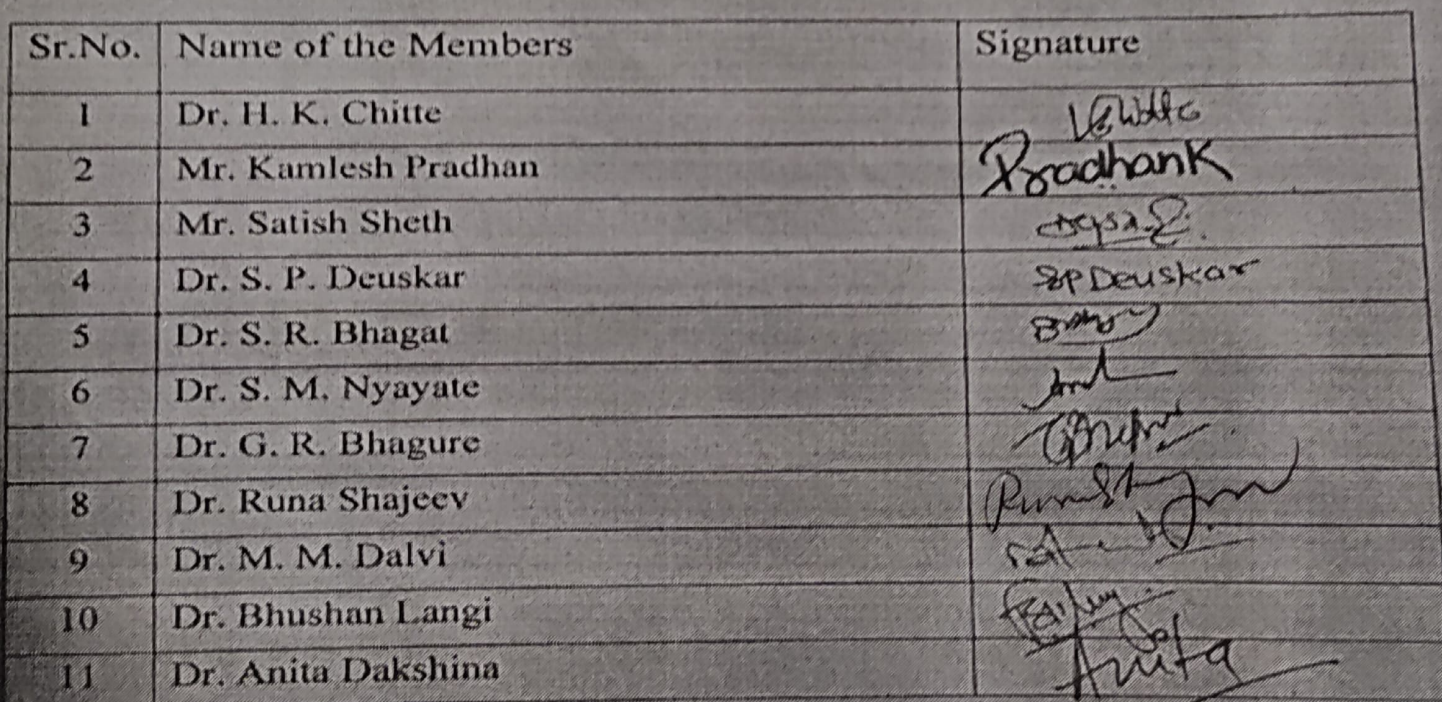 Sr.No. Name of the Members Signature
1 Dr. H. K. Chitte
2 Mr. Kamlesh Pradhan PradhanK
3 Mr. Satish Sheth
4 Dr. S. P. Deuskar SP Deuskar
5 Dr. S. R. Bhagat
6 Dr. S. M. Nyayate
7 Dr. G. R. Bhagure
8 Dr. Runa Shajeev
9 Dr. M. M. Dalvi
10 Dr. Bhushan Langi
11 Dr. Anita Dakshina Anita